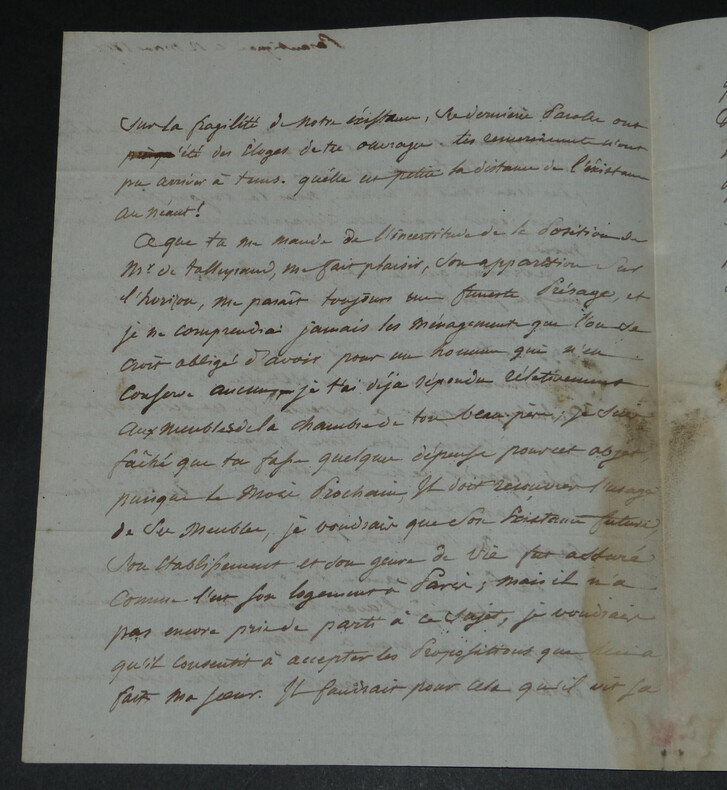 sur la fragilité de notre existance, Ses dernière Parolles ont
été des Eloges de ton ouvrage. tes remerciments n'ont
pu arriver à tems. quelle est petite la distance de l'éxistance
au néant!
Ce que tu me mande de l'incertitude de la Position de
Mr. de talleyrand, me fait plaisir, Son apparition Sur
l'horizon, me parait toujours un funeste Présage, et
je ne comprendrai jamais les ménagements que l'on se
croit obligé d'avoir pour un homme qui n'en
Conserve aucun, je t'ai déja répondu rélativement
aux Meubles de la chambre de ton beau-père, je suis
faché que tu fasse quelque dépense pour cet objet
puisque le Mois Prochain, Il doit recouvrer l'usage
de Ses Meubles, je voudrais que Son Existance future,
Son Etablissement et Son genre de vie fut assuré
Comme l'est Son logement à Paris; mais il n'a
pas encore pris de parti à ce Sujet, je voudrais
qu'il Consentit à accepter les Propositions que lui a
fait Ma Sœur. Il faudrait pour cela qu'il vit Sa